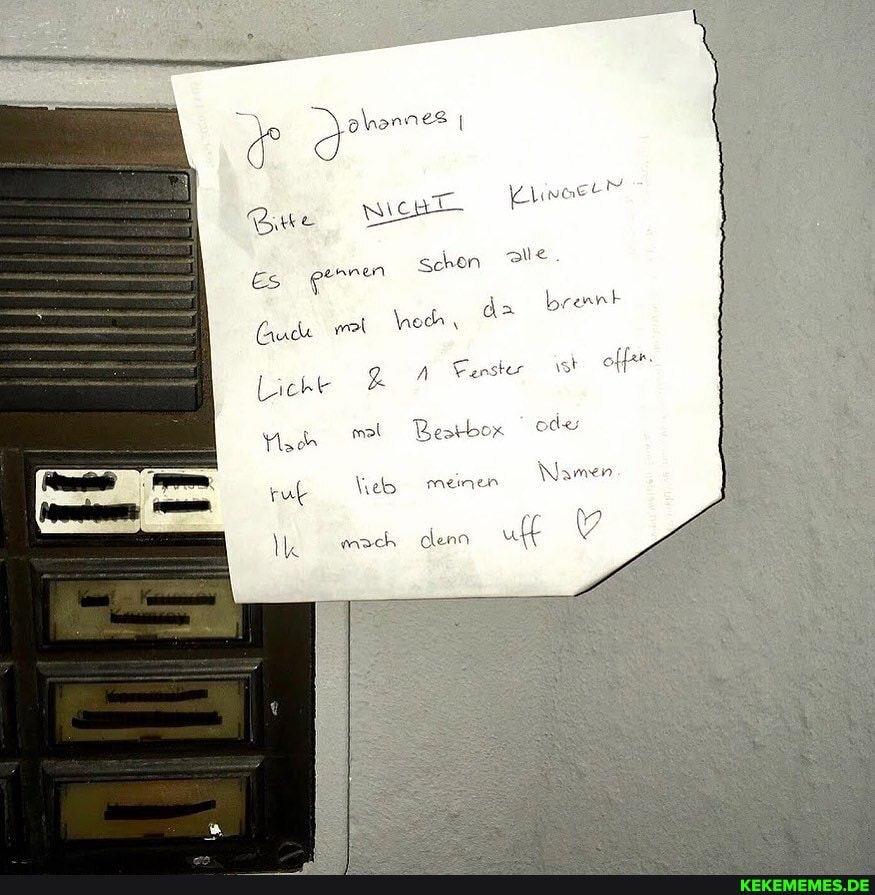 Jo Johannes,
Bitte NICHT KLINGELN
Es pennen schon alle.
Guck mal hoch, da brennt
Licht & 1 Fenster ist offen.
Mach mal Beatbox oder
ruf lieb meinen Namen.
Ik mach denn uff ♡
KEKEMEMES.DE